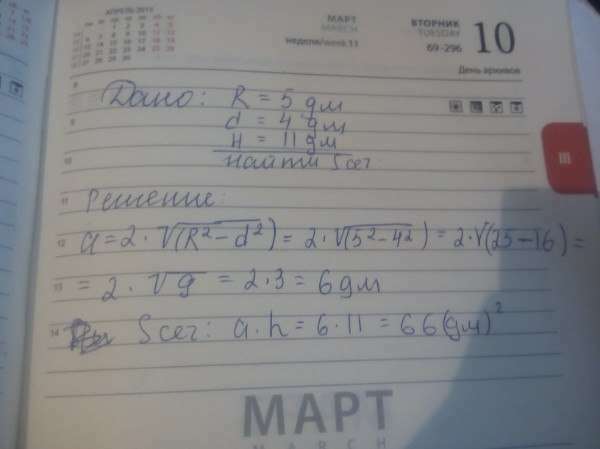 АПРЕЛЬ 2015
МАРТ
MARCH
недели/week 11
ВТОРНИК
TUESDAY
69-296
10
День архивов
Дано: R = 5 дм
d = 4 дм
H = 11 дм
найти Sсег
III
Решение:
a = 2 · √(R² - d²) = 2 · √(5² - 4²) = 2 · √(25 - 16) =
= 2 · √9 = 2 · 3 = 6 дм
Sсег: a · h = 6 · 11 = 66 (дм)²
8
9
10
11
12
13
14
МАРТ
MARCH